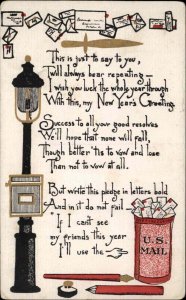 This is just to say to you,
I will always bear repeating—
I wish you luck the whole year through
With this, my New Year's Greeting.
Success to all your good resolves
We'll hope that none will fall,
Though better 'tis to vow and lose
Than not to vow at all.
But write this pledge in letters bold
And in it do not fail—
"If I can't see
my friends this year
I'll use the
U.S.
MAIL